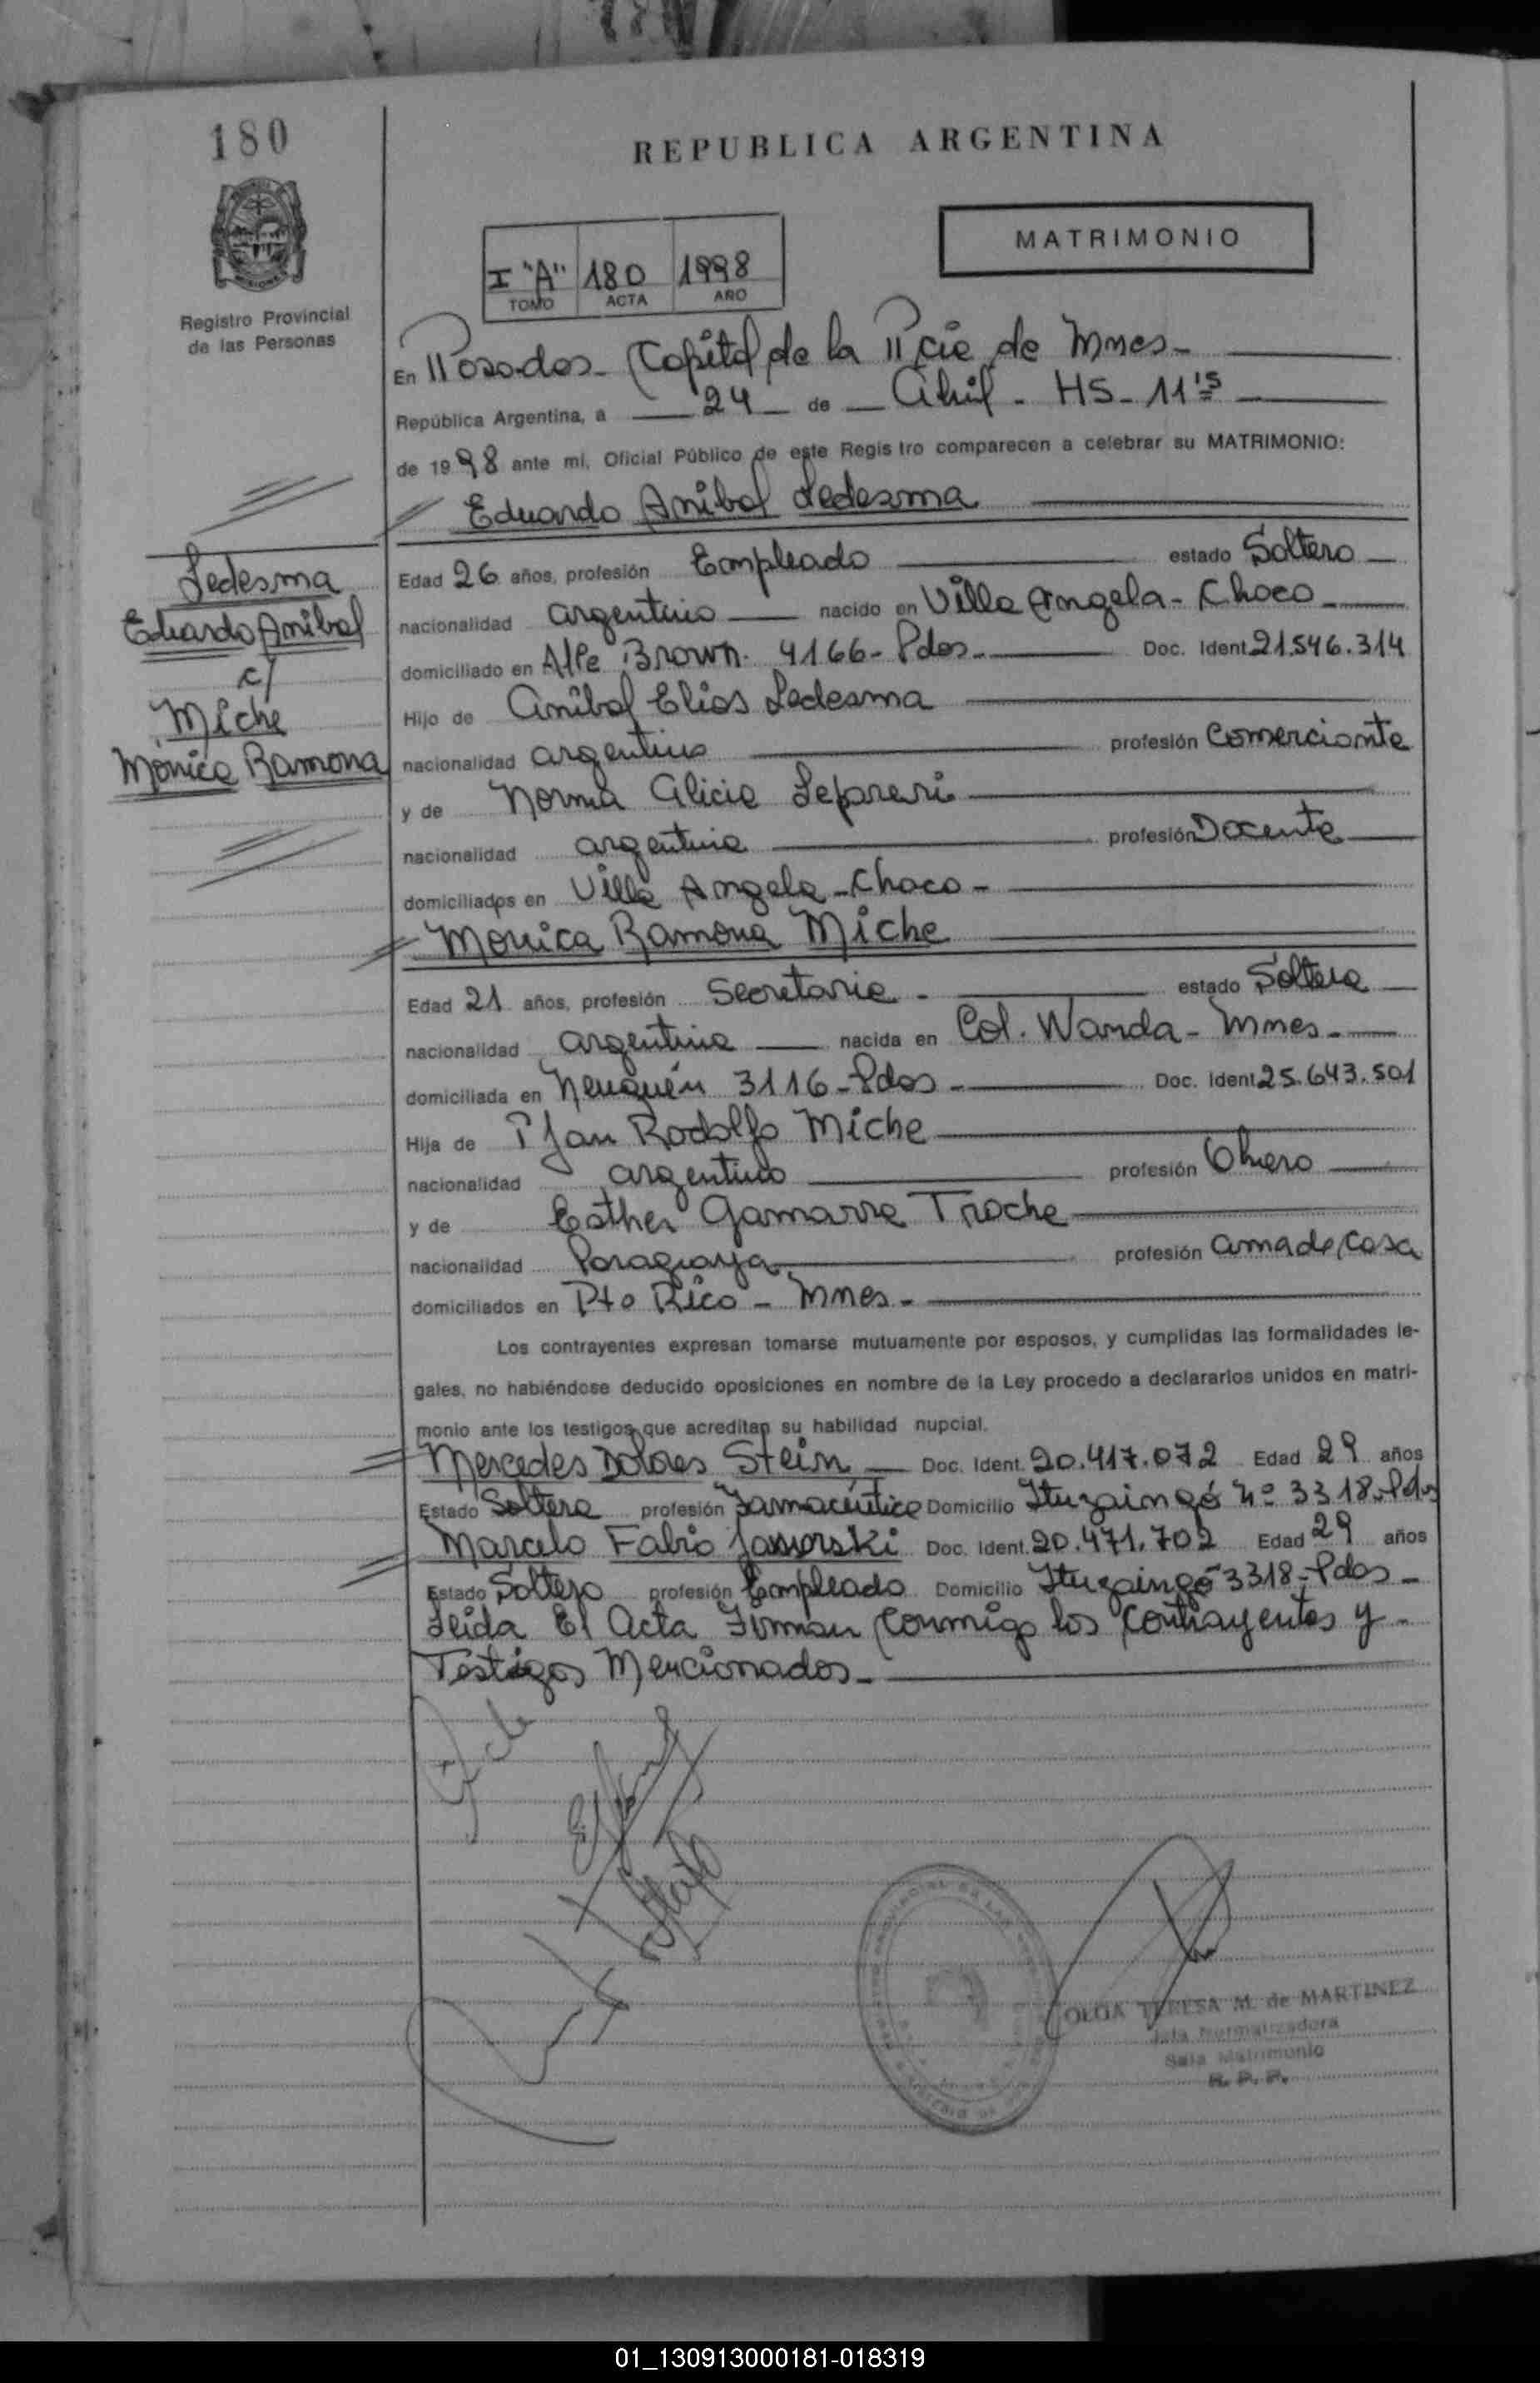 180
REPUBLICA ARGENTINA
MATRIMONIO
I "A" 180 1998
TOMO ACTA AÑO
Registro Provincial
de las Personas
En Posadas - Capital de la Pcia de Mnes -
República Argentina, a 24 de Abril - HS - 11'15
de 1998 ante mí, Oficial Público de este Registro comparecen a celebrar su MATRIMONIO:
Eduardo Anibal Ledesma
Ledesma
Eduardo Anibal
c/
Miche
Mónica Ramona
Edad 26 años, profesión Empleado estado Soltero
nacionalidad argentino nacido en Villa Angela - Chaco -
domiciliado en Alte Brown. 4166 - Pdas - Doc. Ident 21.546.314
Hijo de Anibal Elias Ledesma
nacionalidad argentino profesión Comerciante
y de Norma Alicia
nacionalidad argentina profesión Docente
domiciliados en Villa Angela - Chaco -
Monica Ramona Miche
Edad 21 años, profesión Secretaria - estado Soltera
nacionalidad argentina nacida en Col. Wanda - Mnes -
domiciliada en Neuquén 3116 - Pdas - Doc. Ident 25.643.501
Hija de Rodolfo Miche
nacionalidad argentino profesión Obrero
y de Esther Gamarra Troche
nacionalidad Paraguaya profesión ama de casa
domiciliados en Pto Rico - Mnes -
Los contrayentes expresan tomarse mutuamente por esposos, y cumplidas las formalidades le-
gales, no habiéndose deducido oposiciones en nombre de la Ley procedo a declararlos unidos en matri-
monio ante los testigos que acreditan su habilidad nupcial.
Mercedes Dolores Stein Doc. Ident. 20.417.072 Edad 29 años
Estado Soltera profesión Farmacéutica Domicilio Ituzaingó Nº 3318 - Pdas
Marcelo Fabio Doc. Ident. 20.471.702 Edad 29 años
Estado Soltero profesión Empleado Domicilio Ituzaingó 3318 - Pdas -
Leida El Acta Firman Conmigo los Contrayentes y -
Testigos Mencionados -
OLGA TERESA M. de MARTINEZ
Jefa Normalizadora
Sala Matrimonio
R. P. P.
01_130913000181-018319